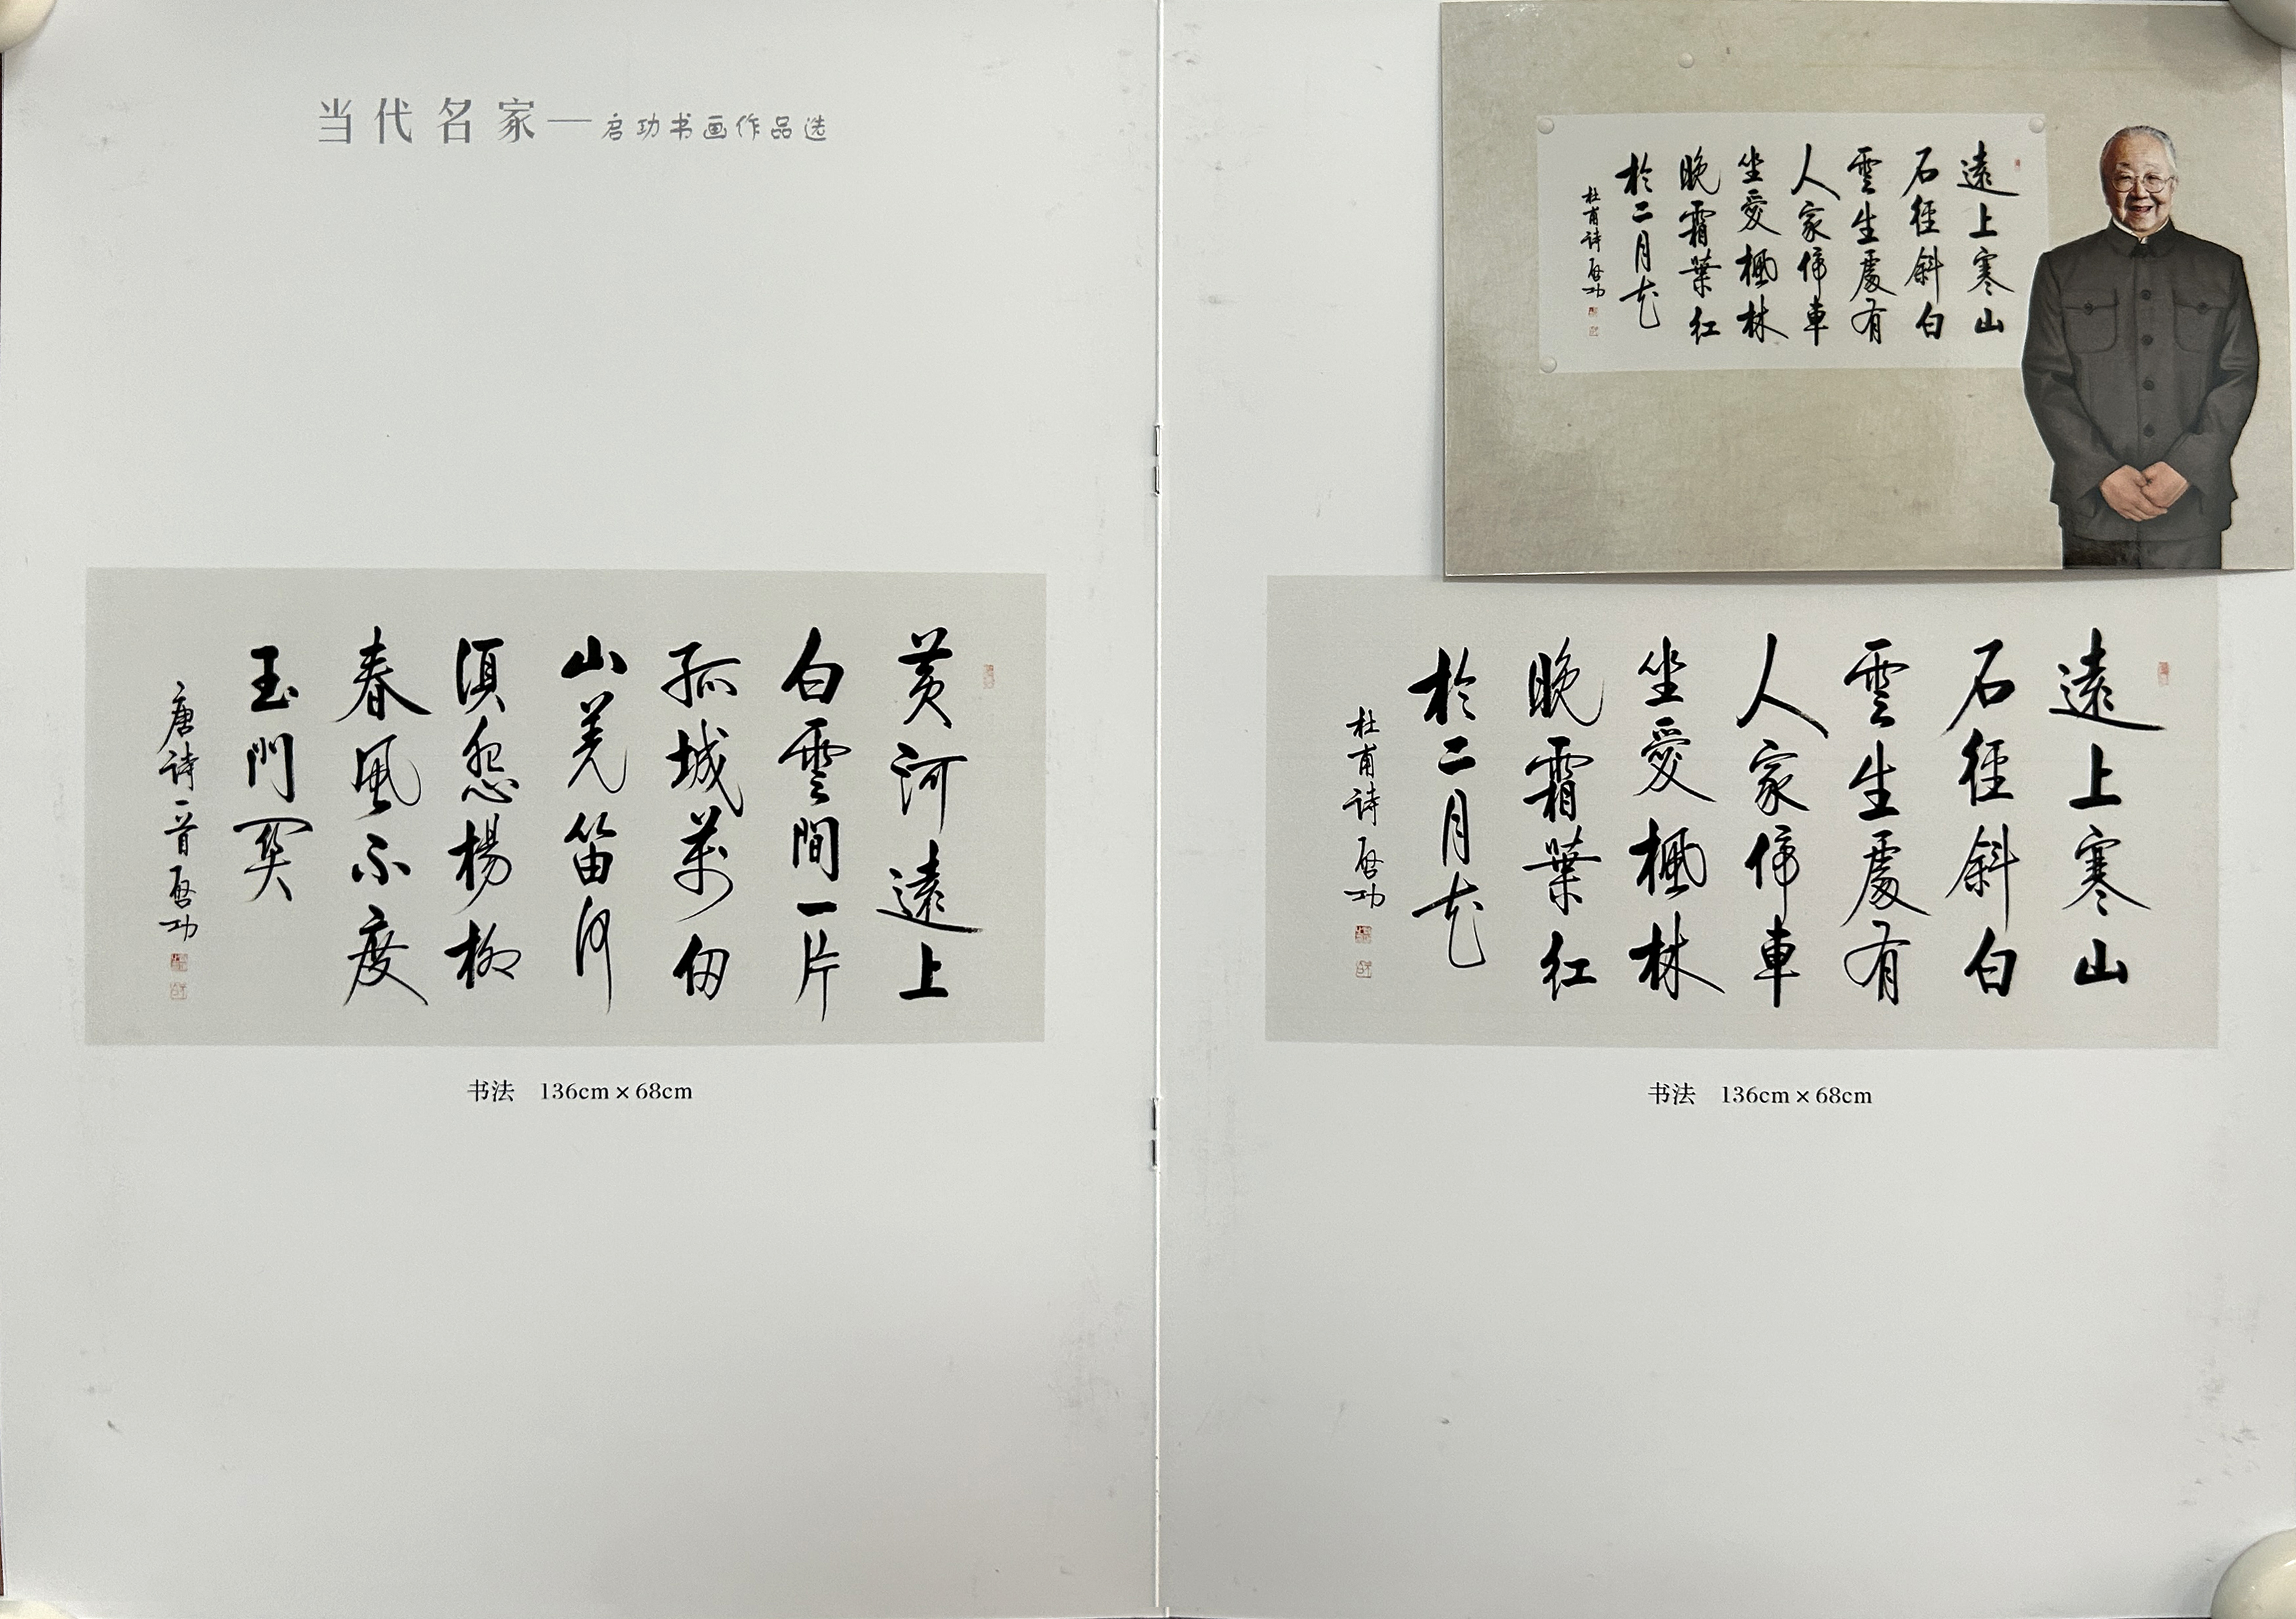 当代名家—启功书画作品选
黄河遠上
白雲間一片
孤城萬仞
山羌笛何
須怨楊柳
春風不度
玉門關
唐詩一首 啓功
书法 136cm×68cm
遠上寒山
石徑斜白
雲生處有
人家停車
坐愛楓林
晚霜葉紅
於二月花
杜甫詩 啓功
遠上寒山
石徑斜白
雲生處有
人家停車
坐愛楓林
晚霜葉紅
於二月花
杜甫詩 啓功
书法 136cm×68cm